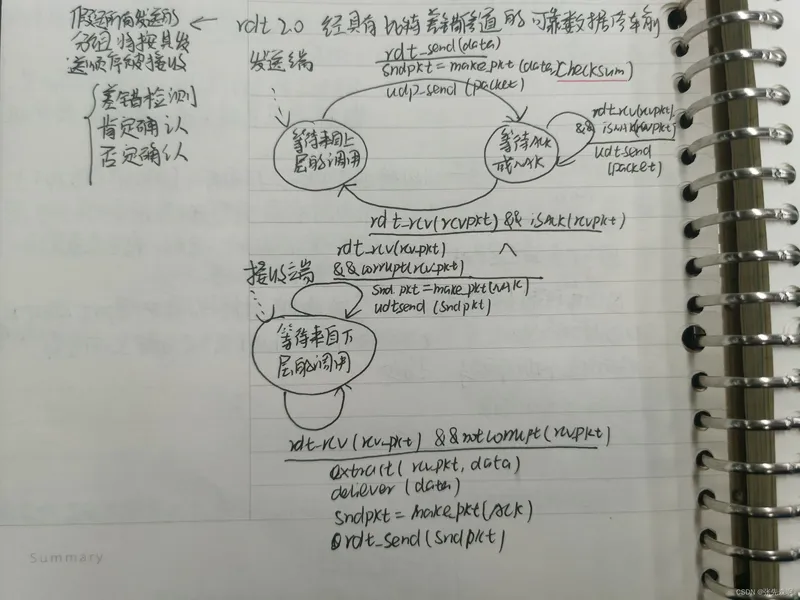 假设所有发送的
分组将按其发
送顺序被接收
差错检测
肯定确认
否定确认
rdt 2.0 经具有比特差错信道的可靠数据传输
发送端
rdt_send(data)
sndpkt=make_pkt(data,checksum)
udp_send(packet)
等待来自上
层的调用
等待ACK
或NAK
rdt_rcv(rcvpkt)
&& isNAK(rcvpkt)
udtsend
(packet)
rdt_rcv(rcvpkt) && isAck(rcvpkt)
∧
接收端
rdt_rcv(rcv_pkt)
&&corrupt(rcv_pkt)
snd pkt=make_pkt(NAK)
udtsend (sndpkt)
等待来自下
层的调用
rdt_rcv (rcv_pkt) &&notcorrupt(rcvpkt)
extract( rcvpkt, data)
deliever (data)
sndpkt=make_pkt(ACK)
rdt_send(sndpkt)
Summary